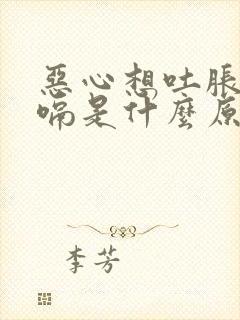 惡心想吐脹
嗝是什麼原
李芳